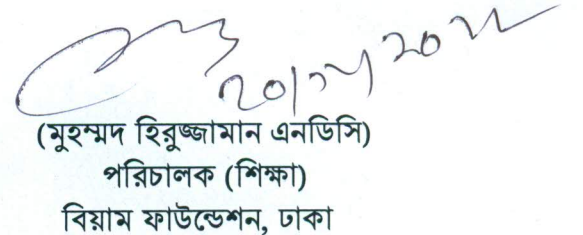 (মুহম্মদ হিরুজ্জামান এনডিসি)
পরিচালক (শিক্ষা)
বিয়াম ফাউন্ডেশন, ঢাকা